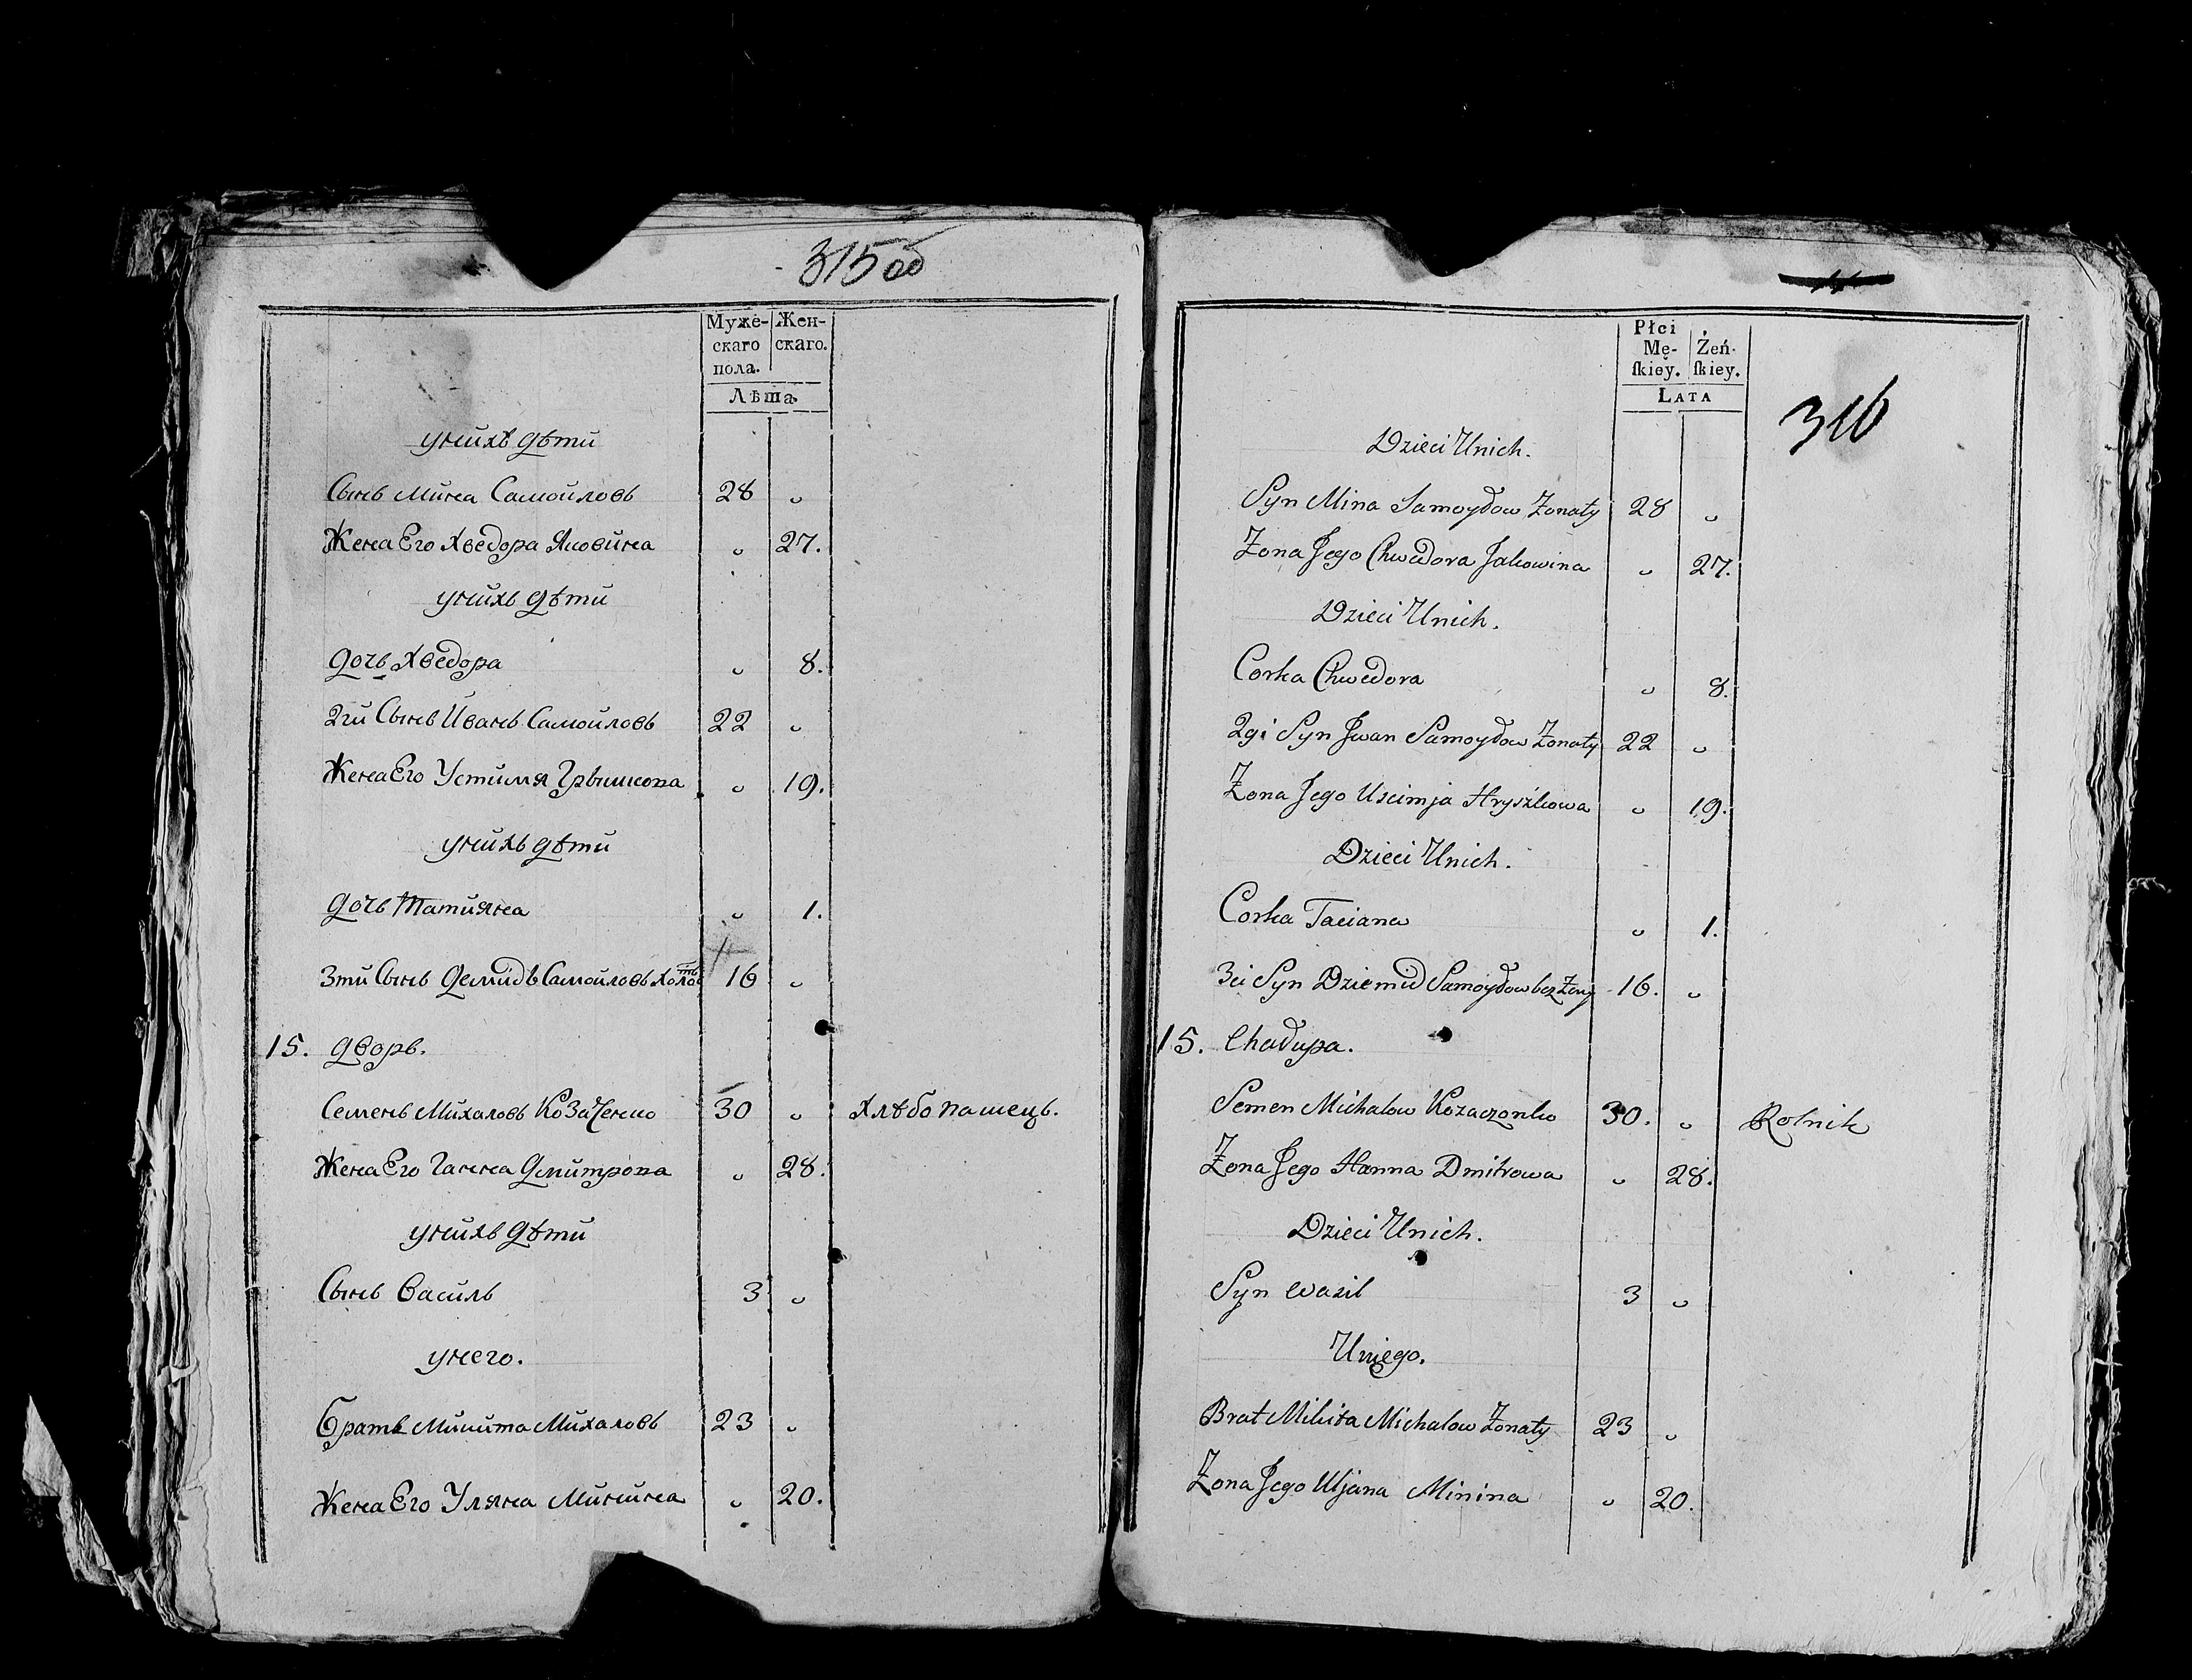 315 об
Муже-
скаго
пола.
Жен-
скаго.
Лѣта
унихъ дѣти
Сынъ Мина Самойловъ 28 „
Жена Его Хведора Яковина „ 27.
унихъ дѣти
дочь Хведора „ 8.
2гй Сынъ Иванъ Самойловъ 22 „
Жена Его Устимя Грышкова „ 19.
унихъ дѣти
дочь Татияна „ 1.
3тй Сынъ Демидъ Самойловъ холост 16 „
15. дворъ.
Семенъ Михаловъ Козаченко 30 „ Хлѣбопашецъ.
Жена Его Ганна Дмитрова „ 28.
унихъ дѣти
Сынъ Василь 3 „
унего.
Братъ Микита Михаловъ 23 „
Жена Его Уляна Минина „ 20.
Płci
Mę-
ſkiey.
Żeń-
ſkiey.
LATA
316
Dzieci Unich.
Syn Mina Samoyłow Żonaty 28 „
Żona Jego Chwedora Jakowina „ 27.
Dzieci Unich.
Corka Chwedora „ 8.
2gi Syn Jwan Samoyłow Żonaty 22 „
Żona Jego Uscimja Hryszkowa „ 19.
Dzieci Unich.
Corka Taciana „ 1.
3ci Syn Dziemid Samoyłow bez Żony 16. „
15. Chałupa.
Semen Michalow Kozaczonko 30. „ Rolnik
Żona Jego Hanna Dmitrowa „ 28.
Dzieci Unich.
Syn Wasil 3 „
Uniego.
Brat Mikita Michalow Żonaty 23 „
Żona Jego Uljana Minina „ 20.